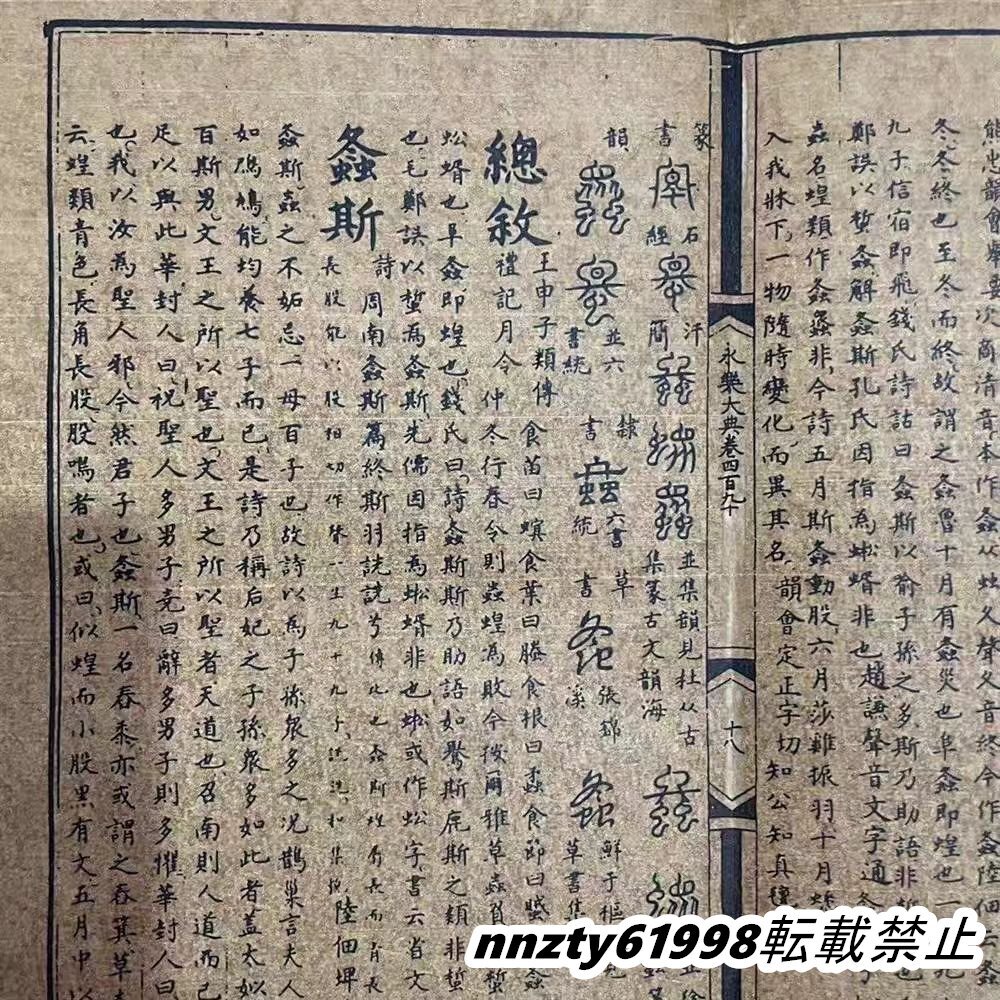 入我牀下一物隨時變化而異其名韻會定正字切知公知真
蟲名蝗類作螽蟁非今詩五月斯螽動股六月莎雞振羽十月蟋
鄭誤以蜤螽解螽斯孔氏因指為蜙蝑非也趙謙聲音文字通
九子信宿即飛錢氏詩詁曰螽斯以喻子孫之多斯乃助語非
冬冬終也至冬而終故謂之螽魯十月有螽災也阜螽即蝗也一
永樂大典卷四百九十
十八
篆書
石經
汗簡
並集韻見杜从古集篆古文韻海
韻
並六書統
隸書
六書統
草書
張錦溪
鮮于樞
草書集
總敘
王申子類傳
食苗曰螟食葉曰螣食根曰蟊食節曰賊
禮記月令仲冬行春令則蟲蝗為敗今按爾雅草蟲負
蜙蝑也阜螽即蝗也錢氏曰詩螽斯斯乃助語如鷽斯鹿斯之類非蜤
也毛鄭誤以蜤為螽斯先儒因指為蜙蝑非也蜙或作蚣字書云省文
螽斯
詩周南螽斯篇螽斯羽詵詵兮
長股能以股相切作聲一生九十九子詵詵和集貌
陸佃埤
螽斯蟲之不妬忌一母百子也故詩以為子孫眾多之況鵲巢言夫人
如鳲鳩能均養七子而已是詩乃稱后妃之子孫眾多如此者蓋太姒
百斯男文王之所以聖也文王之所以聖者天道也召南則人道而已
足以與此華封人曰祝聖人多男子堯曰辭多男子則多懼華封人曰
也我以汝為聖人邪今然君子也螽斯一名舂黍亦或謂之舂箕草
云蝗類青色長角長股股鳴者也或曰似蝗而小股黑有文五月中以
nnzty61998転載禁止